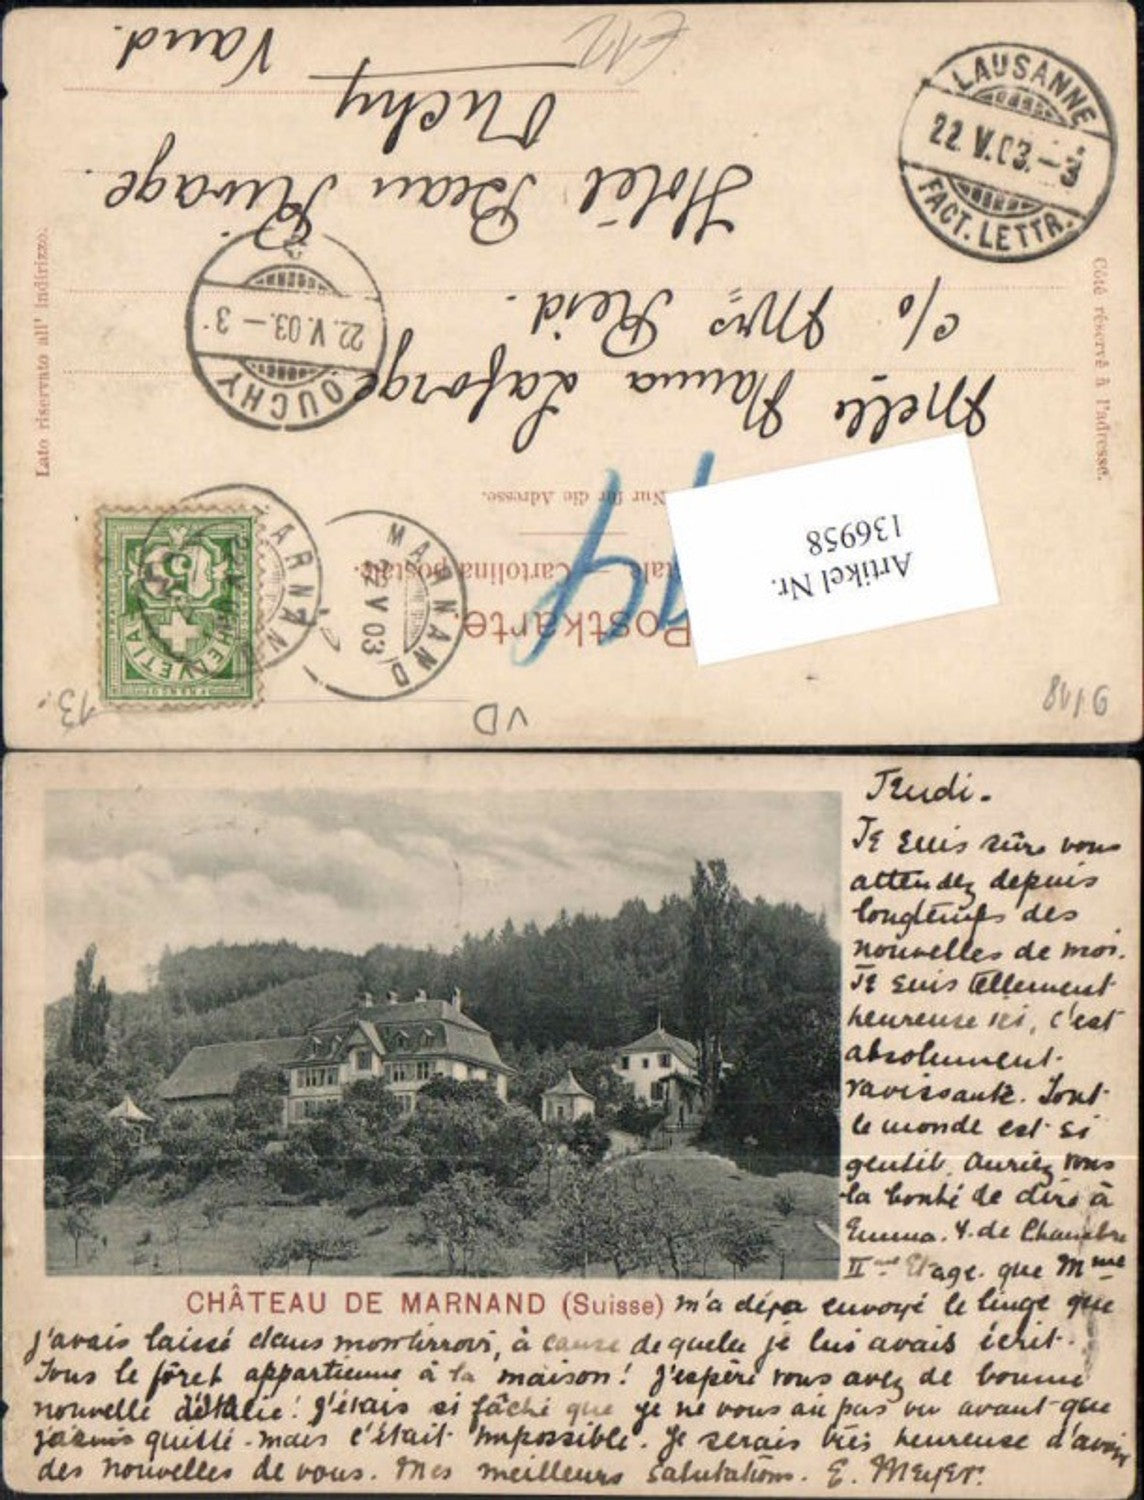 Postkarte.
Cartolina postale
Nur für die Adresse.
Côté réservé à l'adresse.
Lato riservato all' indirizzo.
Artikel Nr.
136958
Melle Nanna Laforge
c/o Mrs Reid.
Hôtel Beau Rivage.
Ouchy
Vaud.
LAUSANNE
22.V.03.-3
FACT. LETTR.
OUCHY
22.V.03.-3
MARNAND
22 V 03
MARNAND
HELVETIA
FRANCO
5
VD
13.
9118
€12
Jeudi.
Je suis sûre vous
attendez depuis
longtemps des
nouvelles de moi.
Je suis tellement
heureuse ici, c'est
absolument
ravissante. Tout
le monde est si
gentil. Auriez vous
la bonté de dire à
Emma. f. de Chambre
II me Etage. que Mme
CHÂTEAU DE MARNAND (Suisse)
m'a déja envoyé le linge que
j'avais laissé dans mon tirroir, à cause de quelle je lui avais écrit.
Tous le fôret appartienne à la maison! J'espère vous avez de bonne
nouvelle d'Italie! J'étais si fâché que je ne vous ai pas vu avant que
jamais quitté - mais c'était impossible. Je serais très heureuse d'avoir
des nouvelles de vous. Mes meilleurs salutations. E. Meyer.